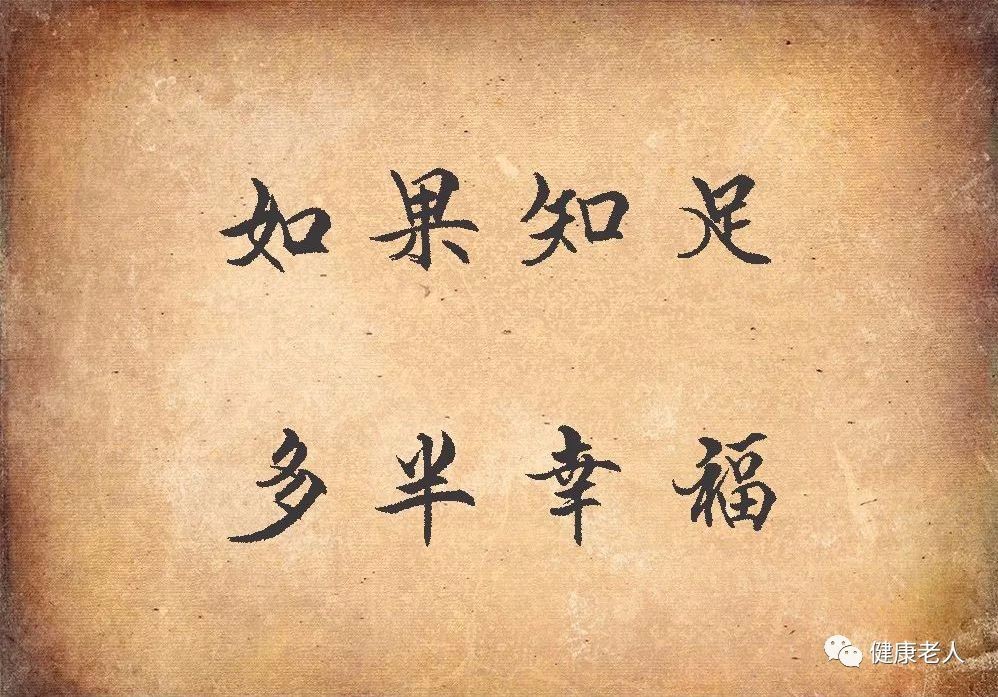 如果知足
多半幸福
健康老人